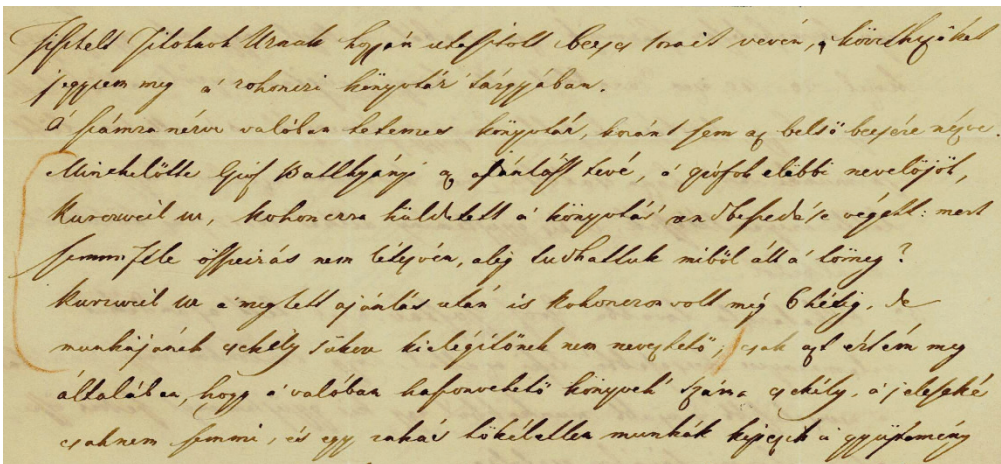 Tisztelt Titoknok Urnak hozzám utasitott becses sorait vevén, a' következőket
jegyzem meg a' rohonczi könyvtár' tárgyában.
A' számra nézve valóban tetemes könyvtár, koránt sem az belső becsére nézve.
Minekelőtte Gróf Batthyányi az ajánlást tevé, a' grófok elébbi nevelőjök,
Kurzweil ur, Rohonczra küldetett a' könyvtár' rendbeszedése végett: mert
semmiféle összeirás nem létezvén, alig tudhattuk miből áll a' tömeg?
Kurzweil ur a' megtett ajánlás után is Rohonczon volt még 6 hétig, de
munkájának csekély sükere kielégitőnek nem nevezhető; csak azt értém meg
általában, hogy a' valóban hasznvehető könyvek' száma csekély, a' jeleseké
csaknem semmi, és egy rakás tökéletlen munkák képezik a' gyüjtemény